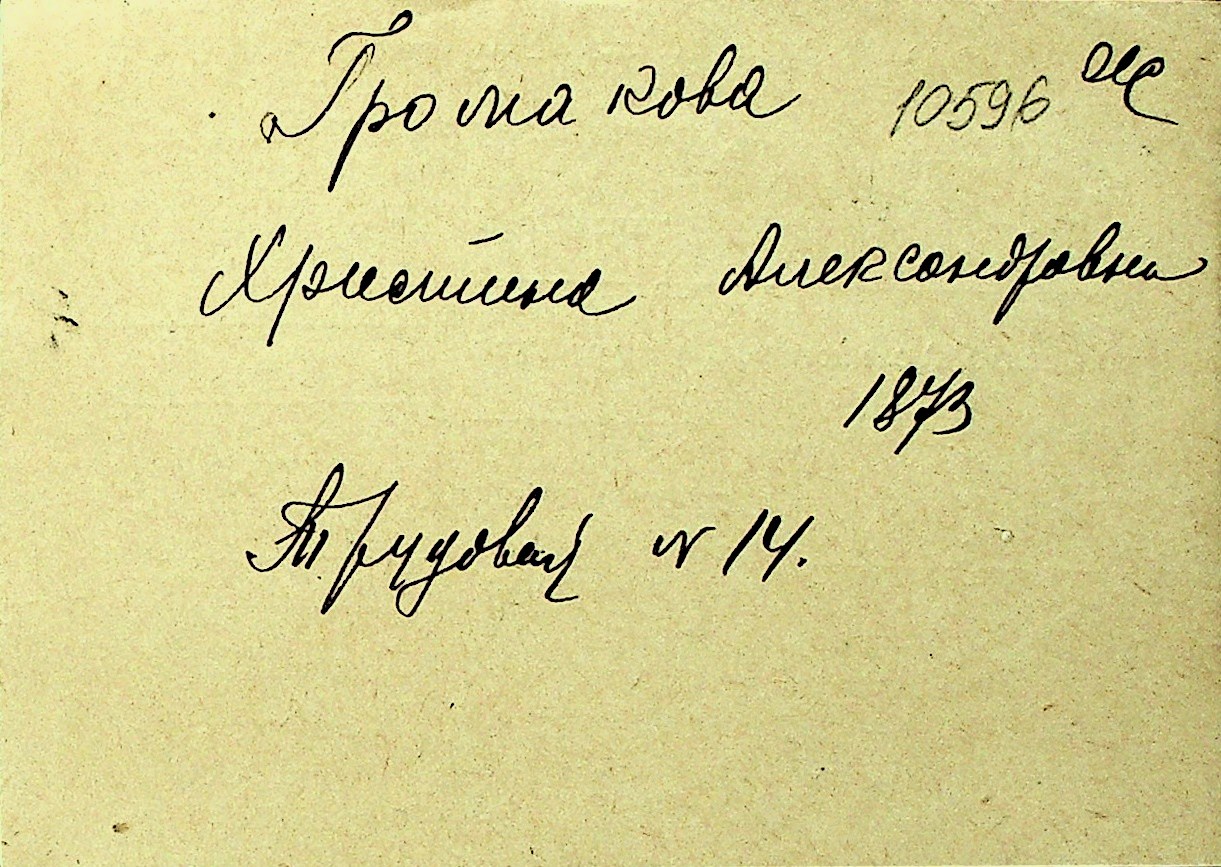 Громакова 10596
Христина Александровна
1873
Трудовая № 14.